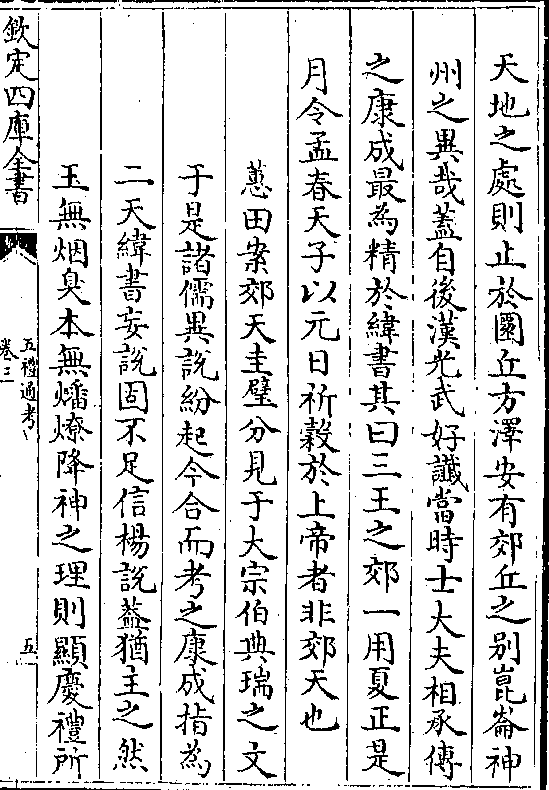 天地之處則止於圜丘方澤安有郊丘之别崑崙神
州之異哉蓋自後漢光武好讖當時士大夫相承傳
之康成最為精於緯書其曰三王之郊一用夏正是
月令孟春天子以元日祈穀於上帝者非郊天也
蕙田案郊天圭璧分見于大宗伯典瑞之文
于是諸儒異説紛起今合而考之康成指為
二天緯書妄説固不足信楊説蓋猶主之然
玉無烟臭本無燔燎降神之理則顯慶禮所
欽定四庫全書
五禮通考
卷三
五